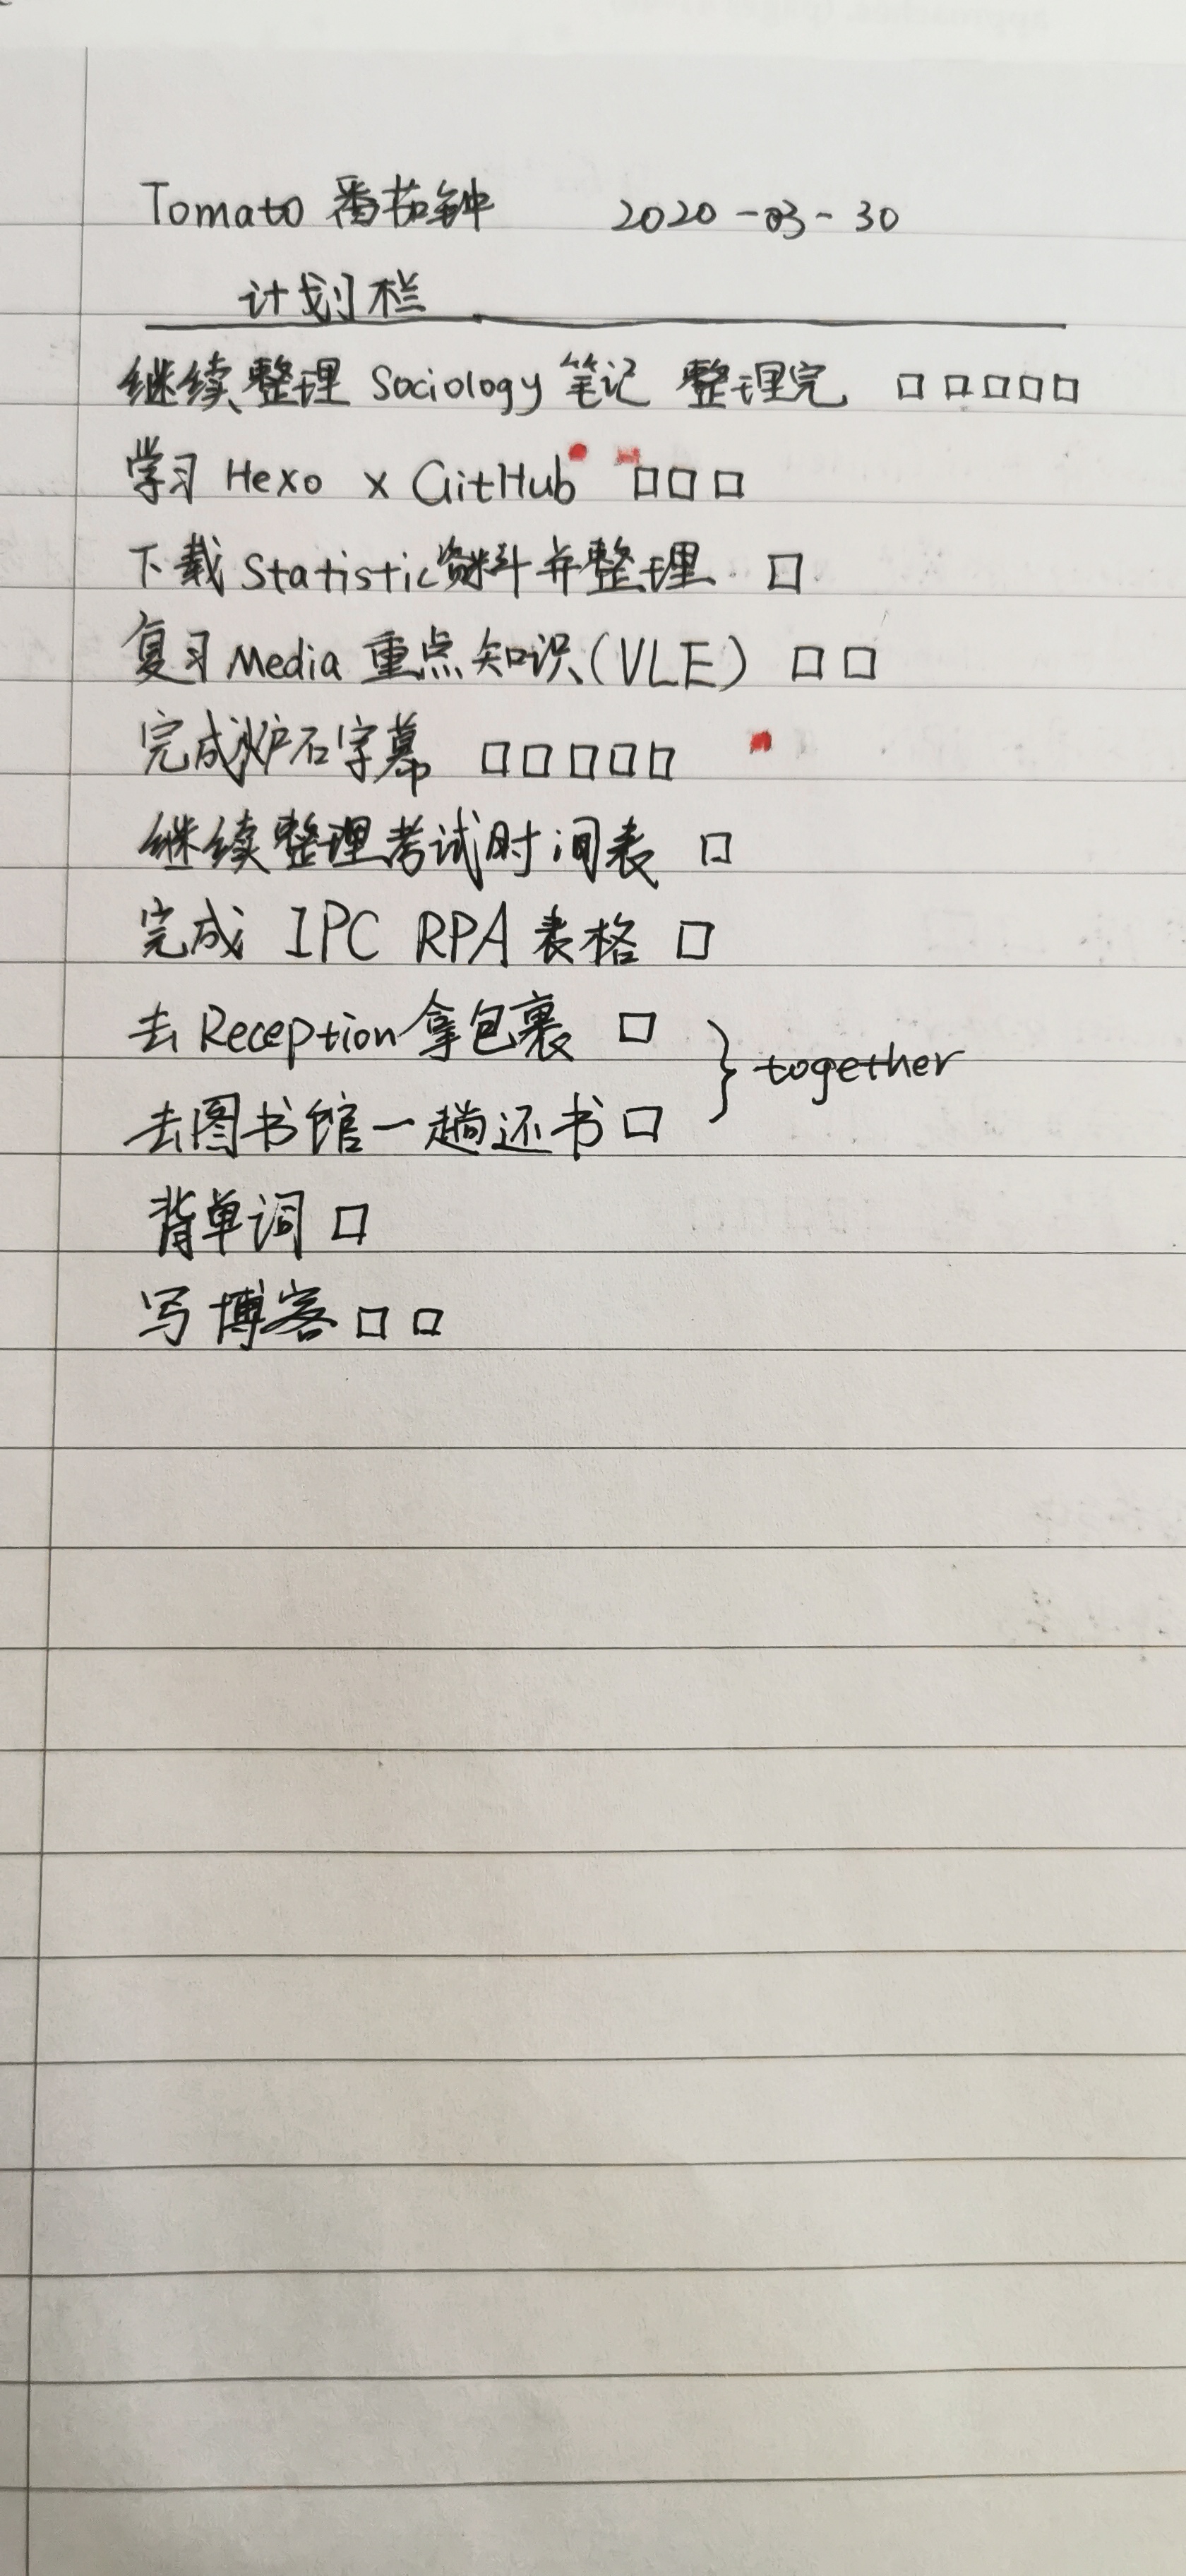 Tomato 番茄钟 2020-03-30
计划栏
继续整理 Sociology 笔记 整理完 □□□□□
学习 Hexo x GitHub □□□
下载 Statistic资料并整理 □
复习 Media 重点知识(VLE) □□
完成炉石字幕 □□□□□
继续整理考试时间表 □
完成 IPC RPA 表格 □
去 Reception 拿包裹 □
} together
去图书馆一趟还书 □
背单词 □
写博客 □□